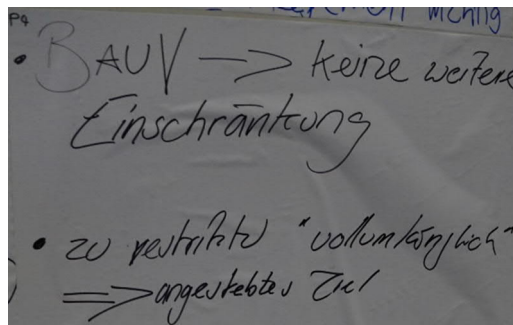 wichtig
P4
• BAUV —> keine weitere
Einschränkung
• zu restriktiv "vollumfänglich"
=> angestrebtes Ziel